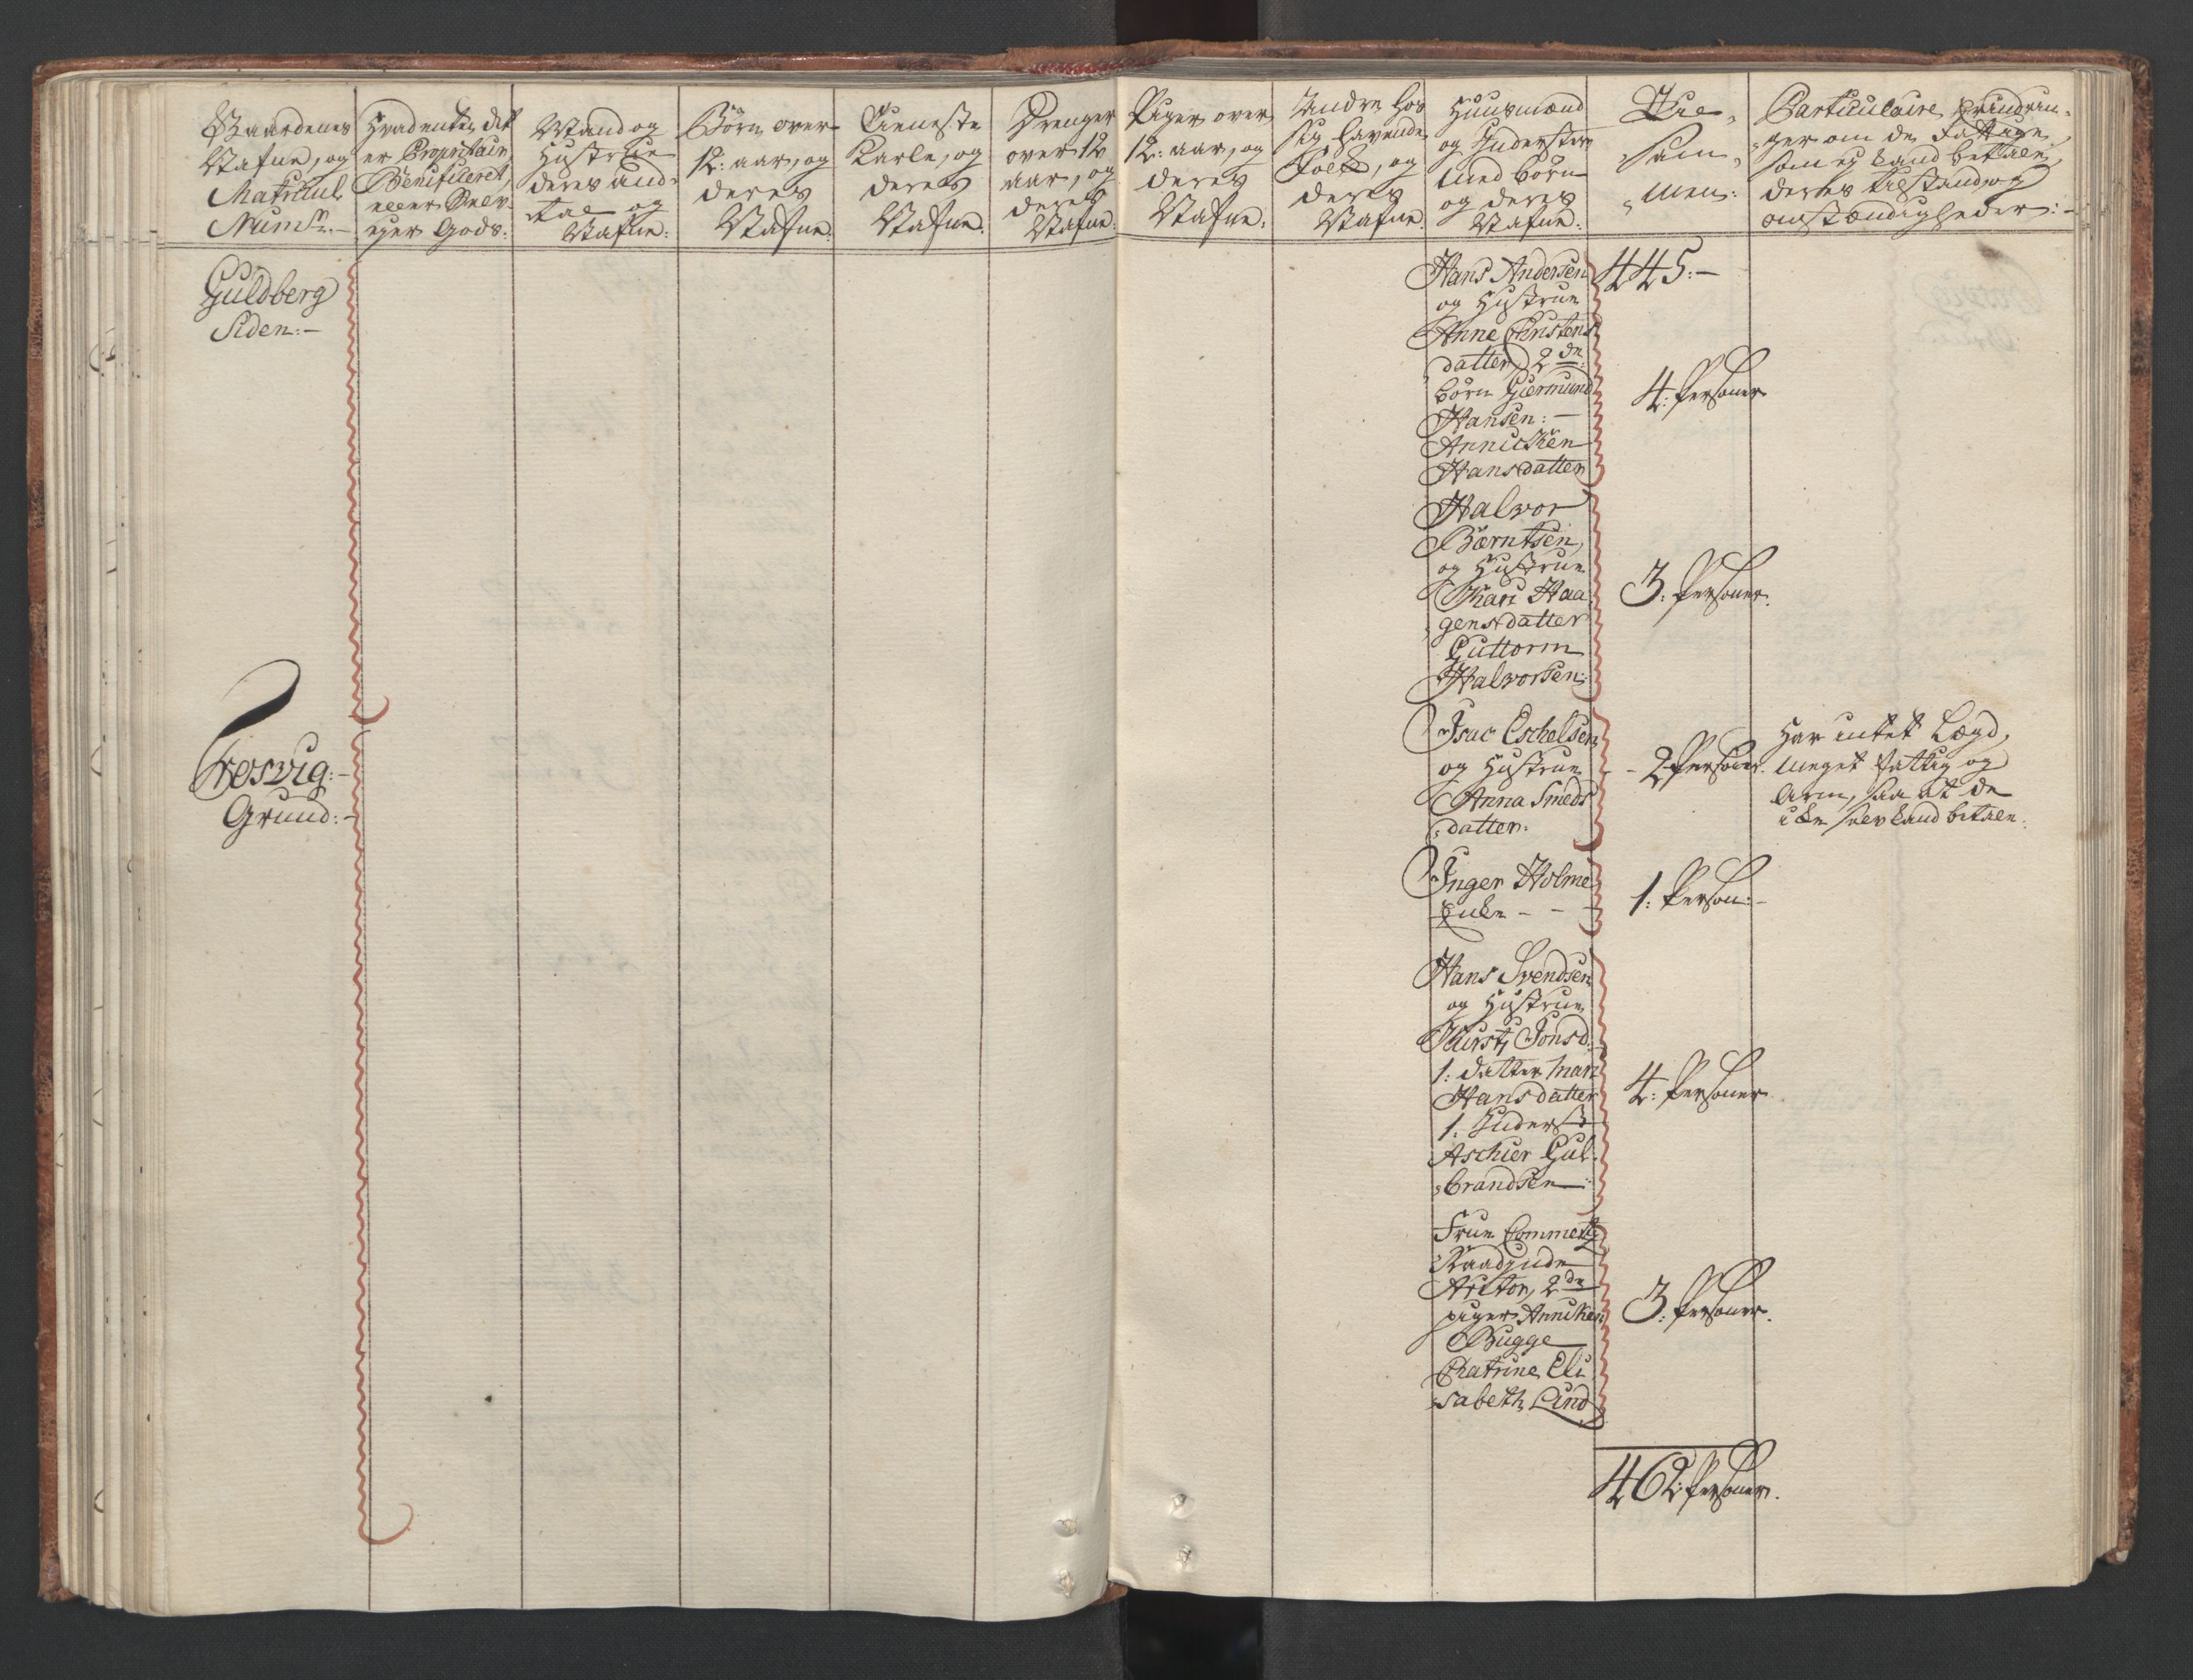 Gaardenes
Nafne, og
Matricul
Num:
Hvad enten det
er Proprietair
Beneficeret,
eller Selv-
ejer Gods:
Mand og
Hustrue
deres and-
tal og
Nafne:
Börn over
12: aar, og
deres
Nafne.
Tieneste
Karle, og
deres
Nafne.
Drenger
over 12
aar, og
deres
Nafne:
Piger over
12: aar, og
deres
Nafne:
Andre hos
sig havende
Folk, og
deres
Nafne.
Huusmænd
og Inderster
med börn
og deres
Nafne:
Til-
sam-
men:
Particulaire Erindrin-
ger om de Fattige,
som ej kand betale,
deres tilstand og
omstændigheder:-
Guldberg
Siden:-
Hans Andersen
og Hustrue
Anne Christens
datter 2de
börn Giermund
Hansen:-
Annichen
Hansdatter
445:-
4: Personer
Halvor
Bærntsen,
og Hustrue
Kari Haa
gensdatter
Guttorm
Halvorsen:
3: Personer.
Tresvig:-
Grund:-
Isac Eschelsen
og Hustrue
Anna Smeds
datter:
- 2 Personer.
Har intet Lægd,
meget fattig og
Arm, saa at de
icke selv kand betale.
Inger Holme
Enke - - -
1: Person:-
Hans Svendsen
og Hustrue
Kirsti Jonsd:
1: datter Mari
Hansdatter
1: Inderst
Aschier Gul-
brandsen:
4: Personer
Frue Commertz
Raadinde
Aritor, 2de
piger Anniken
Bugge
Chatrine Eli
sabeth Lind
3: Personer.
462: Personer.